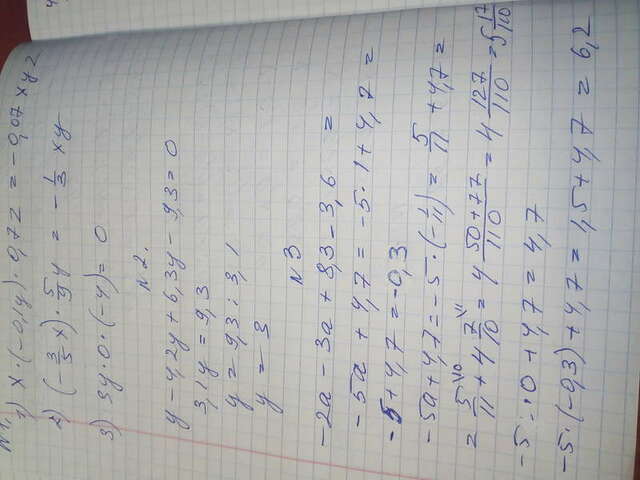 N1.
1) x·(-0,1y)·0,7z = -0,07xyz
2) (-3/5 x)·5/9 y = -1/3 xy
3) 3y·0·(-y) = 0
N2.
y - 4,2y + 6,3y - 9,3 = 0
3,1y = 9,3
y = 9,3 : 3,1
y = 3
N3
-2a - 3a + 8,3 - 3,6 =
-5a + 4,7 = -5·1 + 4,7 =
-5 + 4,7 = -0,3
-5a + 4,7 = -5·(-1/11) = 5/11 + 4,7 =
= 5/11 \10 + 4 7/10 \11 = 4 50+77/110 = 4 127/110 = 5 17/110
-5·0 + 4,7 = 4,7
-5·(-0,3) + 4,7 = 1,5 + 4,7 = 6,2